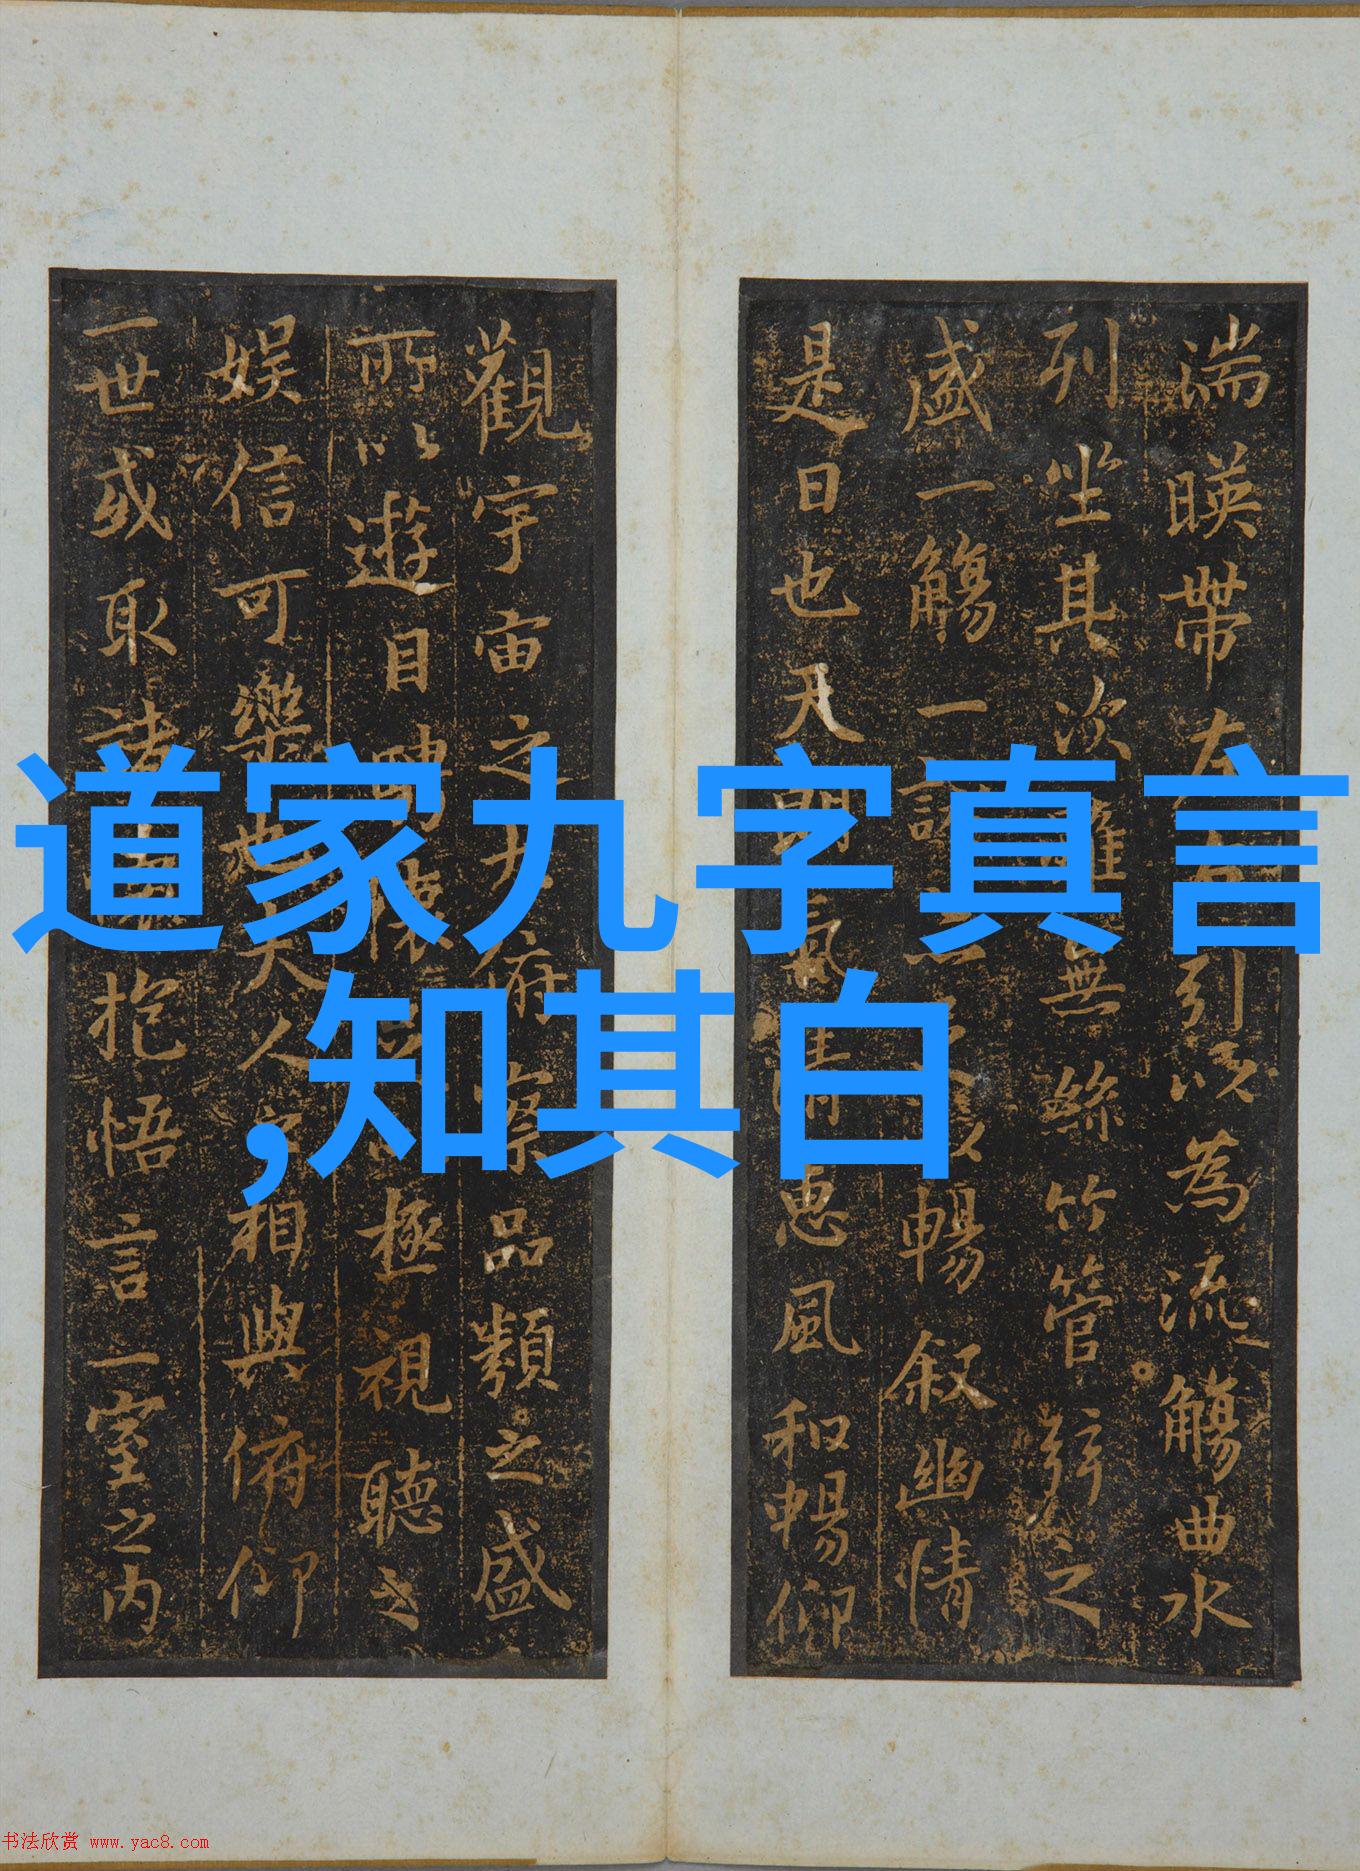 湍暎帶左右引以為流觴曲水
列坐其次雖無絲竹管弦之
盛一觴一詠亦足以暢叙幽情
是日也天朗氣清惠風和暢仰
觀宇宙之大俯察品類之盛
所以遊目騁懷足以極視聽之
娱信可樂也夫人之相與俯仰
一世或取諸懷抱悟言一室之内
道家九字真言
,知其白
书法欣赏 www.yac8.com